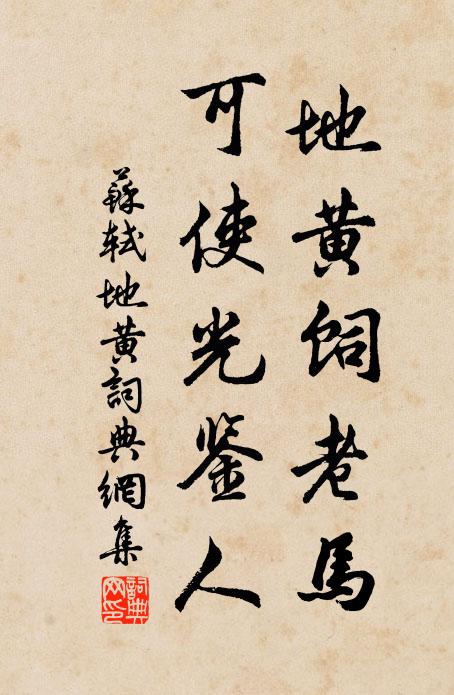 地黄饲老馬
可使光鉴人
蘇軾地黄詞典網集
詞典网印